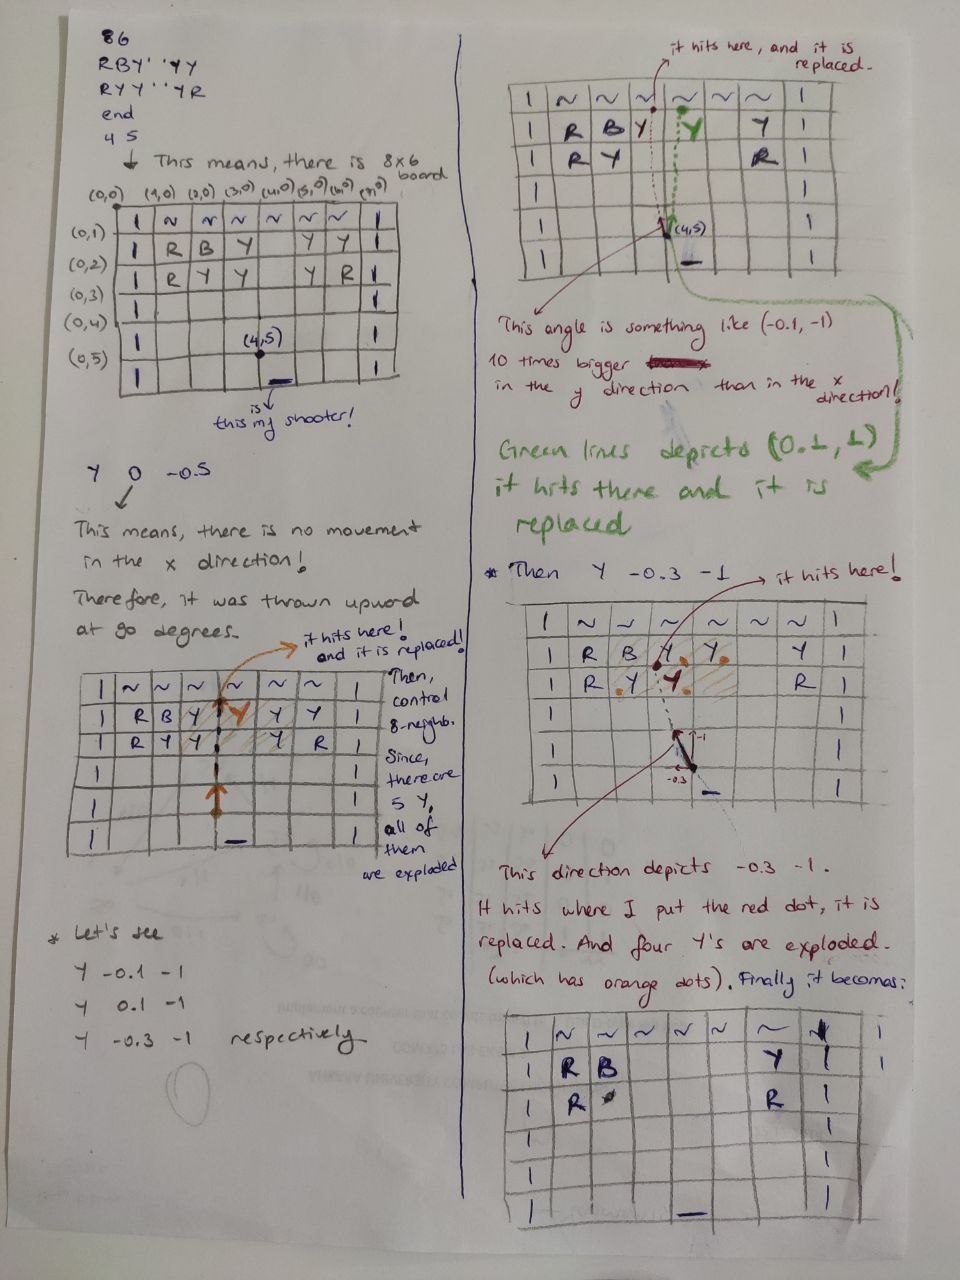 86
RBY··YY
RYY··YR
end
4 5
This means, there is 8x6 board
(0,0) (1,0) (2,0) (3,0) (4,0) (5,0) (6,0) (7,0)
| ~ ~ ~ ~ ~ |
(0,1) | R B Y Y Y |
(0,2) | R Y Y Y R |
(0,3) |
(0,4) | |
(4,5)
(0,5) | _ |
is
this my shooter!
Y 0 -0.5
This means, there is no movement
in the x direction!
Therefore, it was thrown upword
at 90 degrees.
it hits here!
and it is replaced!
| ~ ~ ~ ~ ~ ~ |
| R B Y Y Y Y |
| R Y Y Y R |
| |
| |
| _ |
Then,
control
8-neighb.
Since,
there are
5 Y,
all of
them
are exploded
* Let's see
Y -0.1 -1
Y 0.1 -1
Y -0.3 -1 respectively
it hits here, and it is
replaced.
| ~ ~ ~ ~ ~ ~ |
| R B Y Y Y |
| R Y R |
| |
| (4,5) |
| _ |
This angle is something like (-0.1, -1)
10 times bigger
in the y direction than in the x
direction!
Green lines depicts (0.1, 1)
it hits there and it is
replaced
* Then Y -0.3 -1 it hits here!
| ~ ~ ~ ~ ~ ~ |
| R B Y Y Y |
| R Y Y R |
| |
| -1 |
-0.3
| _ |
This direction depicts -0.3 -1.
It hits where I put the red dot, it is
replaced. And four Y's are exploded.
(which has orange dots). Finally it becomes:
| ~ ~ ~ ~ ~ |
| R B Y | |
| R R |
| |
| |
| _ |